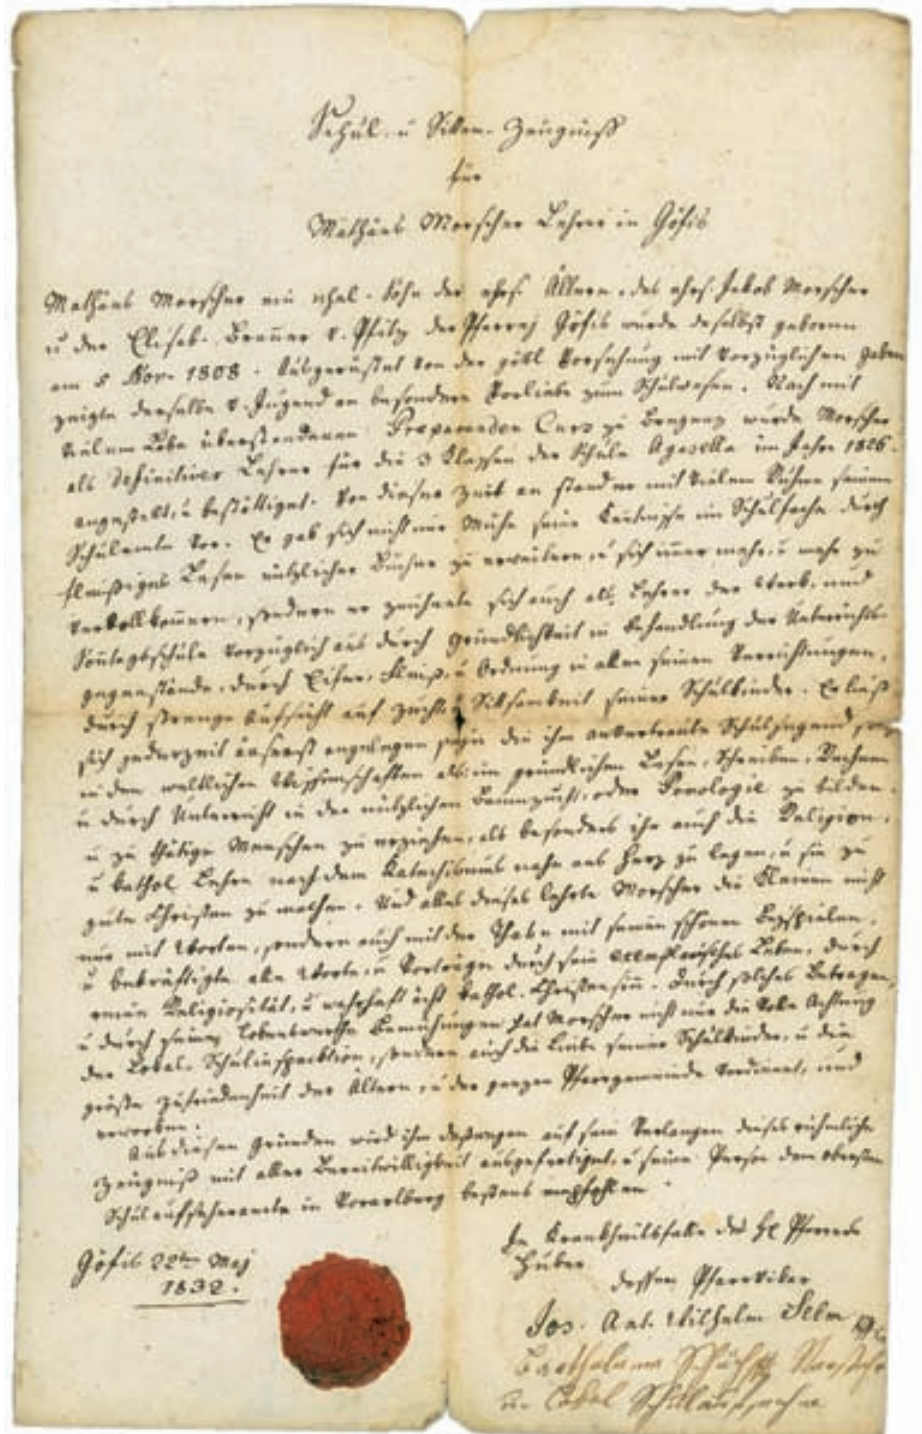 Schul- u Sitten-Zeugniß
für
Mathäus Morscher Lehrer in Göfis
Mathäus Morscher ein ehel. Sohn der ehrs. Ältern, des ehrs. Jakob Morscher
u der Elisab. v. der Pfarrej Göfis wurde daselbst geboren
am 5 Nov. 1808. Ausgerüstet von der göttl Vorsehung mit vorzüglichen Gaben
zeigte derselbe v. Jugend an besondere Vorliebe zum Schulwesen. Nach mit
vielem Lobe überstandenen Præparanden Curs zu Bregenz wurde Morscher
als definitiver Lehrer für die 3 Klassen der Schule Agasella im Jahre 1826
angestellt, u bestättiget. Von dieser Zeit an stand er mit vielem Ruhme seinem
Schulamte vor. Er gab sich nicht nur Mühe seine Kentnisse im Schulfache durch
fleißiges Lesen nützlicher Bücher zu erweitern, u sich immer mehr, u mehr zu
vervollkommnen, sondern er zeichnete sich auch als Lehrer der Werk- und
Sontagsschule vorzüglich aus durch Gründlichkeit in Behandlung der Unterrichts-
gegenstände, durch Eifer, Fleiß, u Ordnung in allen seinen Verrichtungen,
durch strenge Aufsicht auf Zucht u Sittsamkeit seiner Schulkinder. Er ließ
sich jederzeit äuserst angelegen seyn die ihm anvertraute Schuljugend
in den weltlichen Wissenschaften als: im gründlichen Lesen, Schreiben, Rechnen
u durch Unterricht in der nützlichen Baumzucht, oder Pomologie zu bilden,
u zu thätige Menschen zu erziehen, als besonders ihr auch die Religion,
u kathol Lehre nach dem Katechismus nahe ans Herz zu legen, u sie zu
gute Christen zu machen. Und alles dieses lehrte Morscher die Kleinen nicht
nur mit Worten, sondern auch mit der That mit seinen schönen Beyspielen,
u bekräftigte alle Worte, u Vorträge durch sein exemplarisches Leben, durch
reine Religiosität, u wahrhaft ächt kathol. Christensinn. Durch solches Betragen,
u durch seine lobenswerthe Bemühungen hat Morscher nicht nur die volle Achtung
der Lokal-Schulinspecktion, sondern auch die Liebe seiner Schulkinder, u die
größte Zufriedenheit der Ältern, u der ganzen Pfarrgemeinde verdienet, und
erworben.
Aus diesen Gründen wird ihm deßwegen auf sein Verlangen dieses rühmliche
Zeugniß mit aller Bereitwilligkeit ausgefertiget, u seine Person dem obersten
Schulaufseheramte in Vorarlberg bestens empfohlen
Göfis 22ten Maj
1832.
In Krankheitsfalle des H Pfarrers
Huber
dessen Pfarrvikar
Jos. Ant. Wilhelm
Vorsteher
u Lokal Schulaufseher